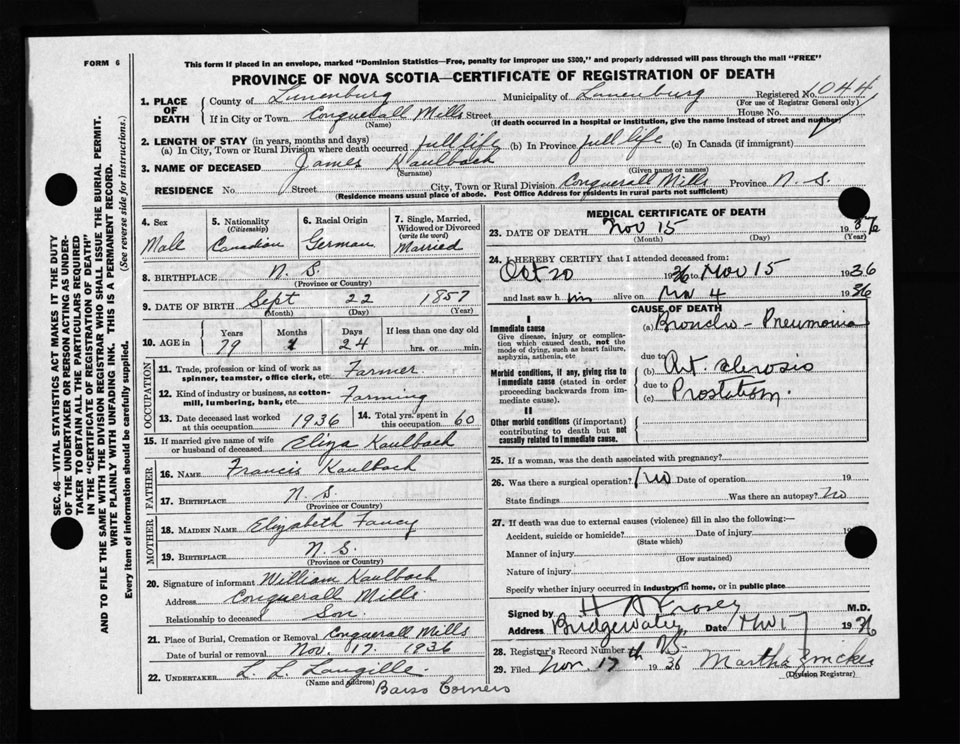 FORM 6
This form if placed in an envelope, marked "Dominion Statistics—Free, penalty for improper use $300," and properly addressed will pass through the mail "FREE"
PROVINCE OF NOVA SCOTIA—CERTIFICATE OF REGISTRATION OF DEATH
1. PLACE OF DEATH
County of Lunenburg Municipality of Lunenburg Registered No. 1044
(For use of Registrar General only)
If in City or Town Conquerall Mills Street House No.
(Name) (If death occurred in a hospital or institution, give the name instead of street and number)
2. LENGTH OF STAY (in years, months and days)
(a) In City, Town or Rural Division where death occurred full life (b) In Province full life (c) In Canada (if immigrant)
3. NAME OF DECEASED James Kaulbach
(Surname) (Given name or names)
RESIDENCE No Street City, Town or Rural Division Conquerall Mills Province N. S.
(Residence means usual place of abode. Post Office Address for residents in rural parts not sufficient)
SEC. 46—VITAL STATISTICS ACT MAKES IT THE DUTY
OF THE UNDERTAKER OR PERSON ACTING AS UNDER-
TAKER TO OBTAIN ALL THE PARTICULARS REQUIRED
IN THE "CERTIFICATE OF REGISTRATION OF DEATH"
AND TO FILE THE SAME WITH THE DIVISION REGISTRAR WHO SHALL ISSUE THE BURIAL PERMIT.
WRITE PLAINLY WITH UNFADING INK. THIS IS A PERMANENT RECORD.
Every item of information should be carefully supplied. (See reverse side for instructions.)
4. Sex
Male
5. Nationality
(Citizenship)
Canadian
6. Racial Origin
German
7. Single, Married, Widowed or Divorced
(write the word)
Married
8. BIRTHPLACE N. S.
(Province or Country)
9. DATE OF BIRTH Sept 22 1857
(Month) (Day) (Year)
10. AGE in
Years Months Days If less than one day old
79 1 24 hrs. or min.
OCCUPATION
11. Trade, profession or kind of work as
spinner, teamster, office clerk, etc. Farmer
12. Kind of industry or business, as cotton-
mill, lumbering, bank, etc. Farming
13. Date deceased last worked
at this occupation 1936
14. Total yrs. spent in
this occupation 60
15. If married give name of wife
or husband of deceased Eliza Kaulbach
FATHER
16. NAME Francis Kaulbach
17. BIRTHPLACE N. S.
(Province or Country)
MOTHER
18. MAIDEN NAME Elizabeth Fancy
19. BIRTHPLACE N. S.
(Province or Country)
20. Signature of informant William Kaulbach
Address Conquerall Mills
Relationship to deceased Son
21. Place of Burial, Cremation or Removal Conquerall Mills
Date of burial or removal Nov. 17. 1936
22. UNDERTAKER L. L. Langille.
(Name and address)
Barss Corners
MEDICAL CERTIFICATE OF DEATH
23. DATE OF DEATH Nov 15 1936
(Month) (Day) (Year)
24. I HEREBY CERTIFY that I attended deceased from:
Oct 20 1936 to Nov 15 1936
and last saw him alive on Nov 4 1936
CAUSE OF DEATH
I
Immediate cause
Give disease, injury or complica-
tion which caused death, not the
mode of dying, such as heart failure,
asphyxia, asthenia, etc
(a) Broncho-Pneumonia
due to
Morbid conditions, if any, giving rise to
immediate cause (stated in order
proceeding backwards from im-
mediate cause).
(b) Art. sclerosis
due to
(c)
II
Other morbid conditions (if important)
contributing to death but not
causally related to immediate cause.
25. If a woman, was the death associated with pregnancy?
26. Was there a surgical operation? No Date of operation 19
State findings Was there an autopsy? No
27. If death was due to external causes (violence) fill in also the following:—
Accident, suicide or homicide? Date of injury 19
(State which)
Manner of injury
(How sustained)
Nature of injury
Specify whether injury occurred in industry, in home, or in public place
Signed by M.D.
Address Bridgewater Date Nov 17 1936
28. Registrar's Record Number
29. Filed Nov. 17th 1936 Martha
(Division Registrar)